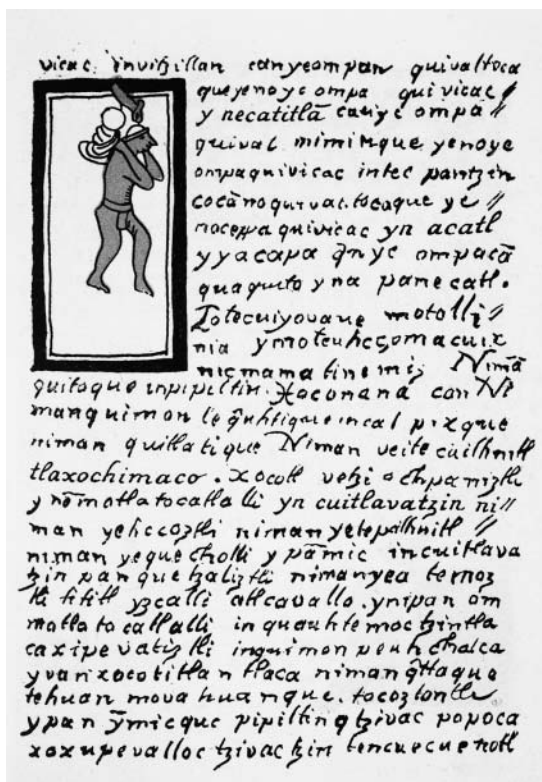 vicac. invitzillan canyeompan quivaltoca
queyenoye ompa quivicac //
y necatitlā cauyc ompa //
quival mimin que yenoye
ompaquivicac intec pantzin
cocānoquivac.tocaque ye //
noceppa quivicac yn acatl
yyacapa q̄nyc ompacā
quaquito yna panecatl.
Totecuiyovane motolli //
nia ȳmoteuhcçomacuix
nicmamatinemi Nimā
quitoque inpipiltin. Xoconana can Ni
manquimon le q̄uhtique in cal pixque
niman quitlatique Niman veite cuilhuitl
tlaxochimaco. xocotl vetzi ochpaniztli
y nōmotlatocatlalli yn cuitlavatzin ni //
man yehecoztli niman yetepilhuitl //
niman yequecholli y pāmic incuitlava
tzin panquetzaliztli nimanyea temoz
tli tititl yzcalli atlcavallo. ynipan om
motlatocatlalli inquauhtemoctzintla
caxipevaliztli inquimon peuhchalca
yvan xocotitlan tlaca niman q̄ttaque
tehuan mova huanque. tocoztontli
ypan ȳmicque pipiltin q tzivac popoca
xoxupevalloc tzivactzin tencuecuenotl